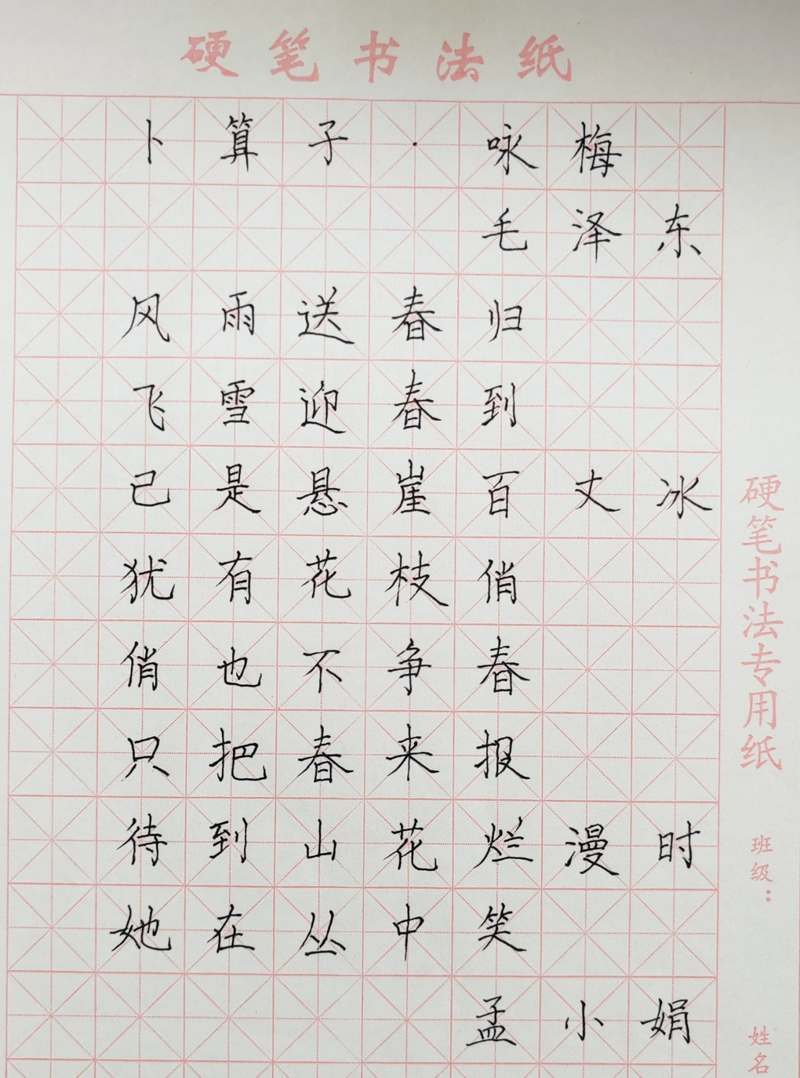 硬笔书法纸
卜算子·咏梅
毛泽东
风雨送春归
飞雪迎春到
已是悬崖百丈冰
犹有花枝俏
俏也不争春
只把春来报
待到山花烂漫时
她在丛中笑
孟小娟
硬笔书法专用纸
班级：
姓名